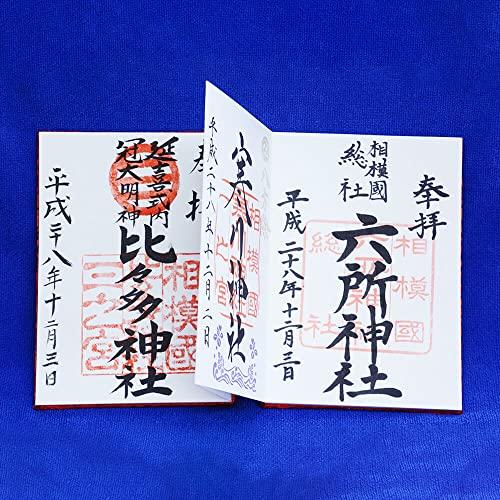 奉拝
相模國
総社
六所神社
平成二十八年十二月三日
相模國
総社
寒川神社
平成二十八年十二月二日
相模國
一之宮
延喜式内
冠大明神
比々多神社
平成廿八年十二月三日
相模國
三之宮